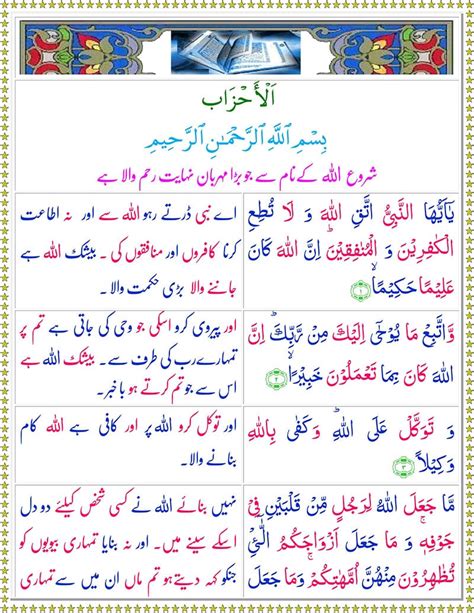 اَلْأَحْزَاب
بِسْمِ ٱللَّهِ ٱلرَّحْمَٰنِ ٱلرَّحِيمِ
شروع الله کے نام سے جو بڑا مہربان نہایت رحم والا ہے
يٰۤاَيُّهَا النَّبِىُّ اتَّقِ اللّٰهَ وَ لَا تُطِعِ
الْكٰفِرِيْنَ وَ الْمُنٰفِقِيْنَ ؕ اِنَّ اللّٰهَ كَانَ
عَلِيْمًا حَكِيْمًا ۙ‏ ﴿۱﴾
اے نبی ڈرتے رہو اللہ سے اور نہ اطاعت
کرنا کافروں اور منافقوں کی ۔ بیشک اللہ ہے
جاننے والا بڑی حکمت والا۔
وَّاتَّبِعْ مَا يُوْحٰٓى اِلَيْكَ مِنْ رَّبِّكَ ؕ اِنَّ
اللّٰهَ كَانَ بِمَا تَعْمَلُوْنَ خَبِيْرًا ۙ‏ ﴿۲﴾
اور پیروی کرو اسکی جو وحی کی جاتی ہے تم پر
تمہارے رب کی طرف سے۔ بیشک اللہ ہے
اس سے جو تم کرتے ہو باخبر۔
وَ تَوَكَّلْ عَلَى اللّٰهِ ؕ وَ كَفٰى بِاللّٰهِ
وَكِيْلًا ﴿۳﴾
اور توکل کرو اللہ پر اور کافی ہے اللہ کام
بنانے والا۔
مَا جَعَلَ اللّٰهُ لِرَجُلٍ مِّنْ قَلْبَيْنِ فِىْ
جَوْفِهٖ ۚ وَ مَا جَعَلَ اَزْوَاجَكُمُ الّٰٓـئِْ
تُظٰهِرُوْنَ مِنْهُنَّ اُمَّهٰتِكُمْ ۚ وَمَا جَعَلَ
نہیں بنائے اللہ نے کسی شخص کیلئے دو دل
اسکے سینے میں۔ اور نہ بنایا تمہاری بیویوں کو
جنکو کہہ دیتے ہو تم ماں ان میں سے تمہاری